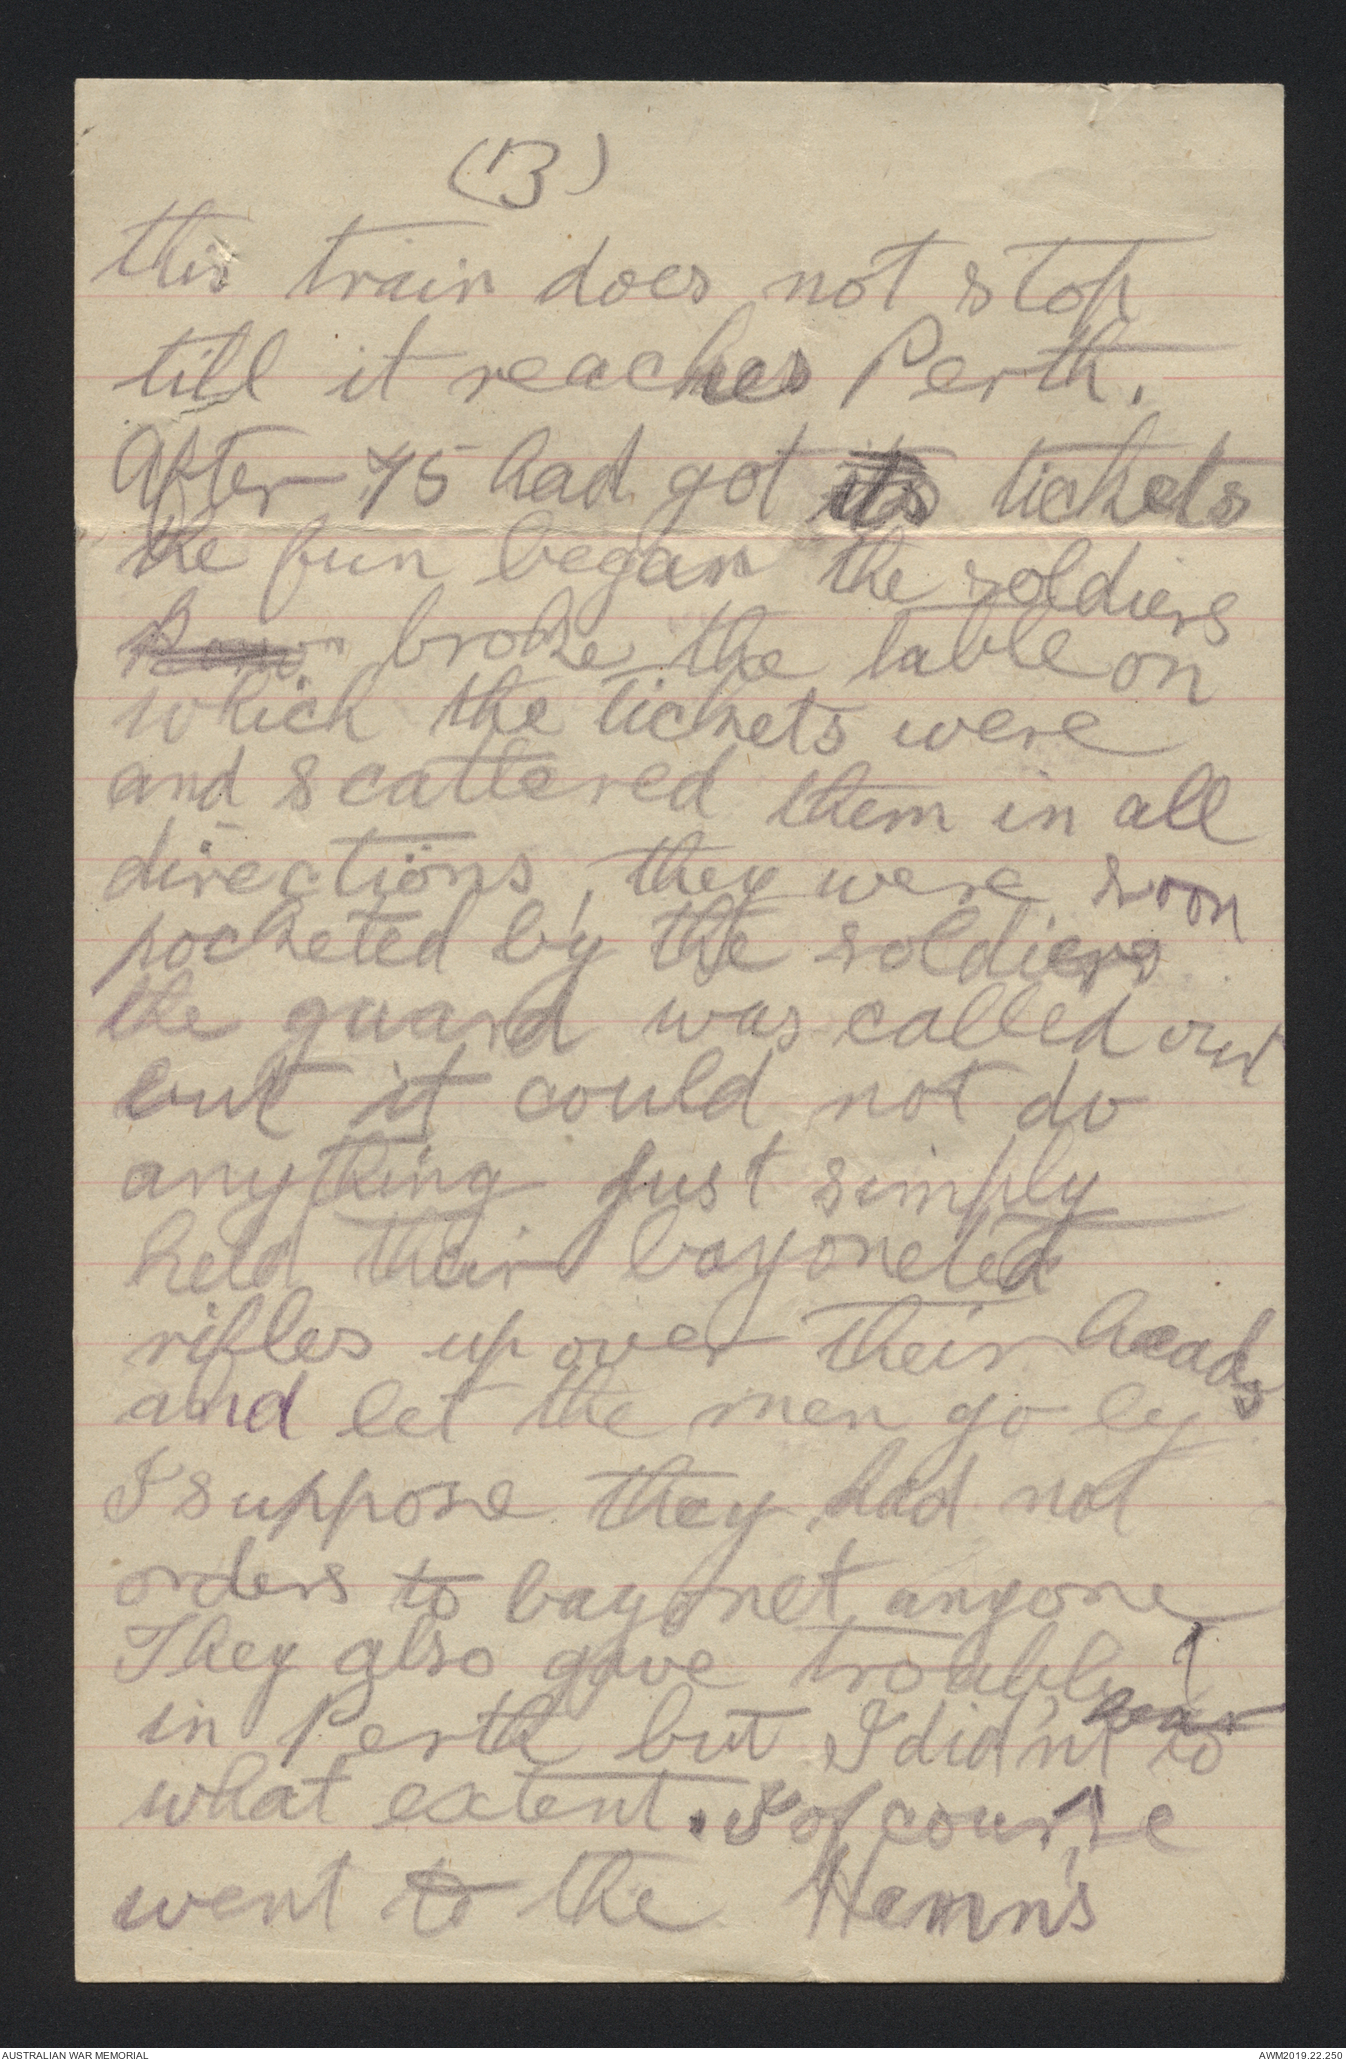 (13)
this train does not stop
till it reaches Perth.
After 45 had got its tickets
the fun began the soldiers
broke the table on
which the tickets were
and scattered them in all
directions, they were soon
pocketed by the soldiers
the guard was called out
but it could not do
anything just simply
held their bayoneted
rifles up over their heads
and let the men go by
I suppose they had not
orders to bayonet anyone
They also gave trouble
in Perth but I didn't hear to
what extent. I of course
went to the Hamn's
AUSTRALIAN WAR MEMORIAL
AWM2019.22.250